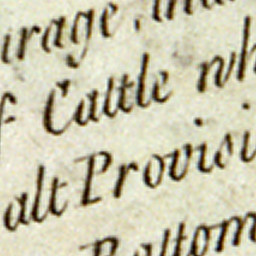 urage, 
f Cattle wh
alt Provisi
Bottom